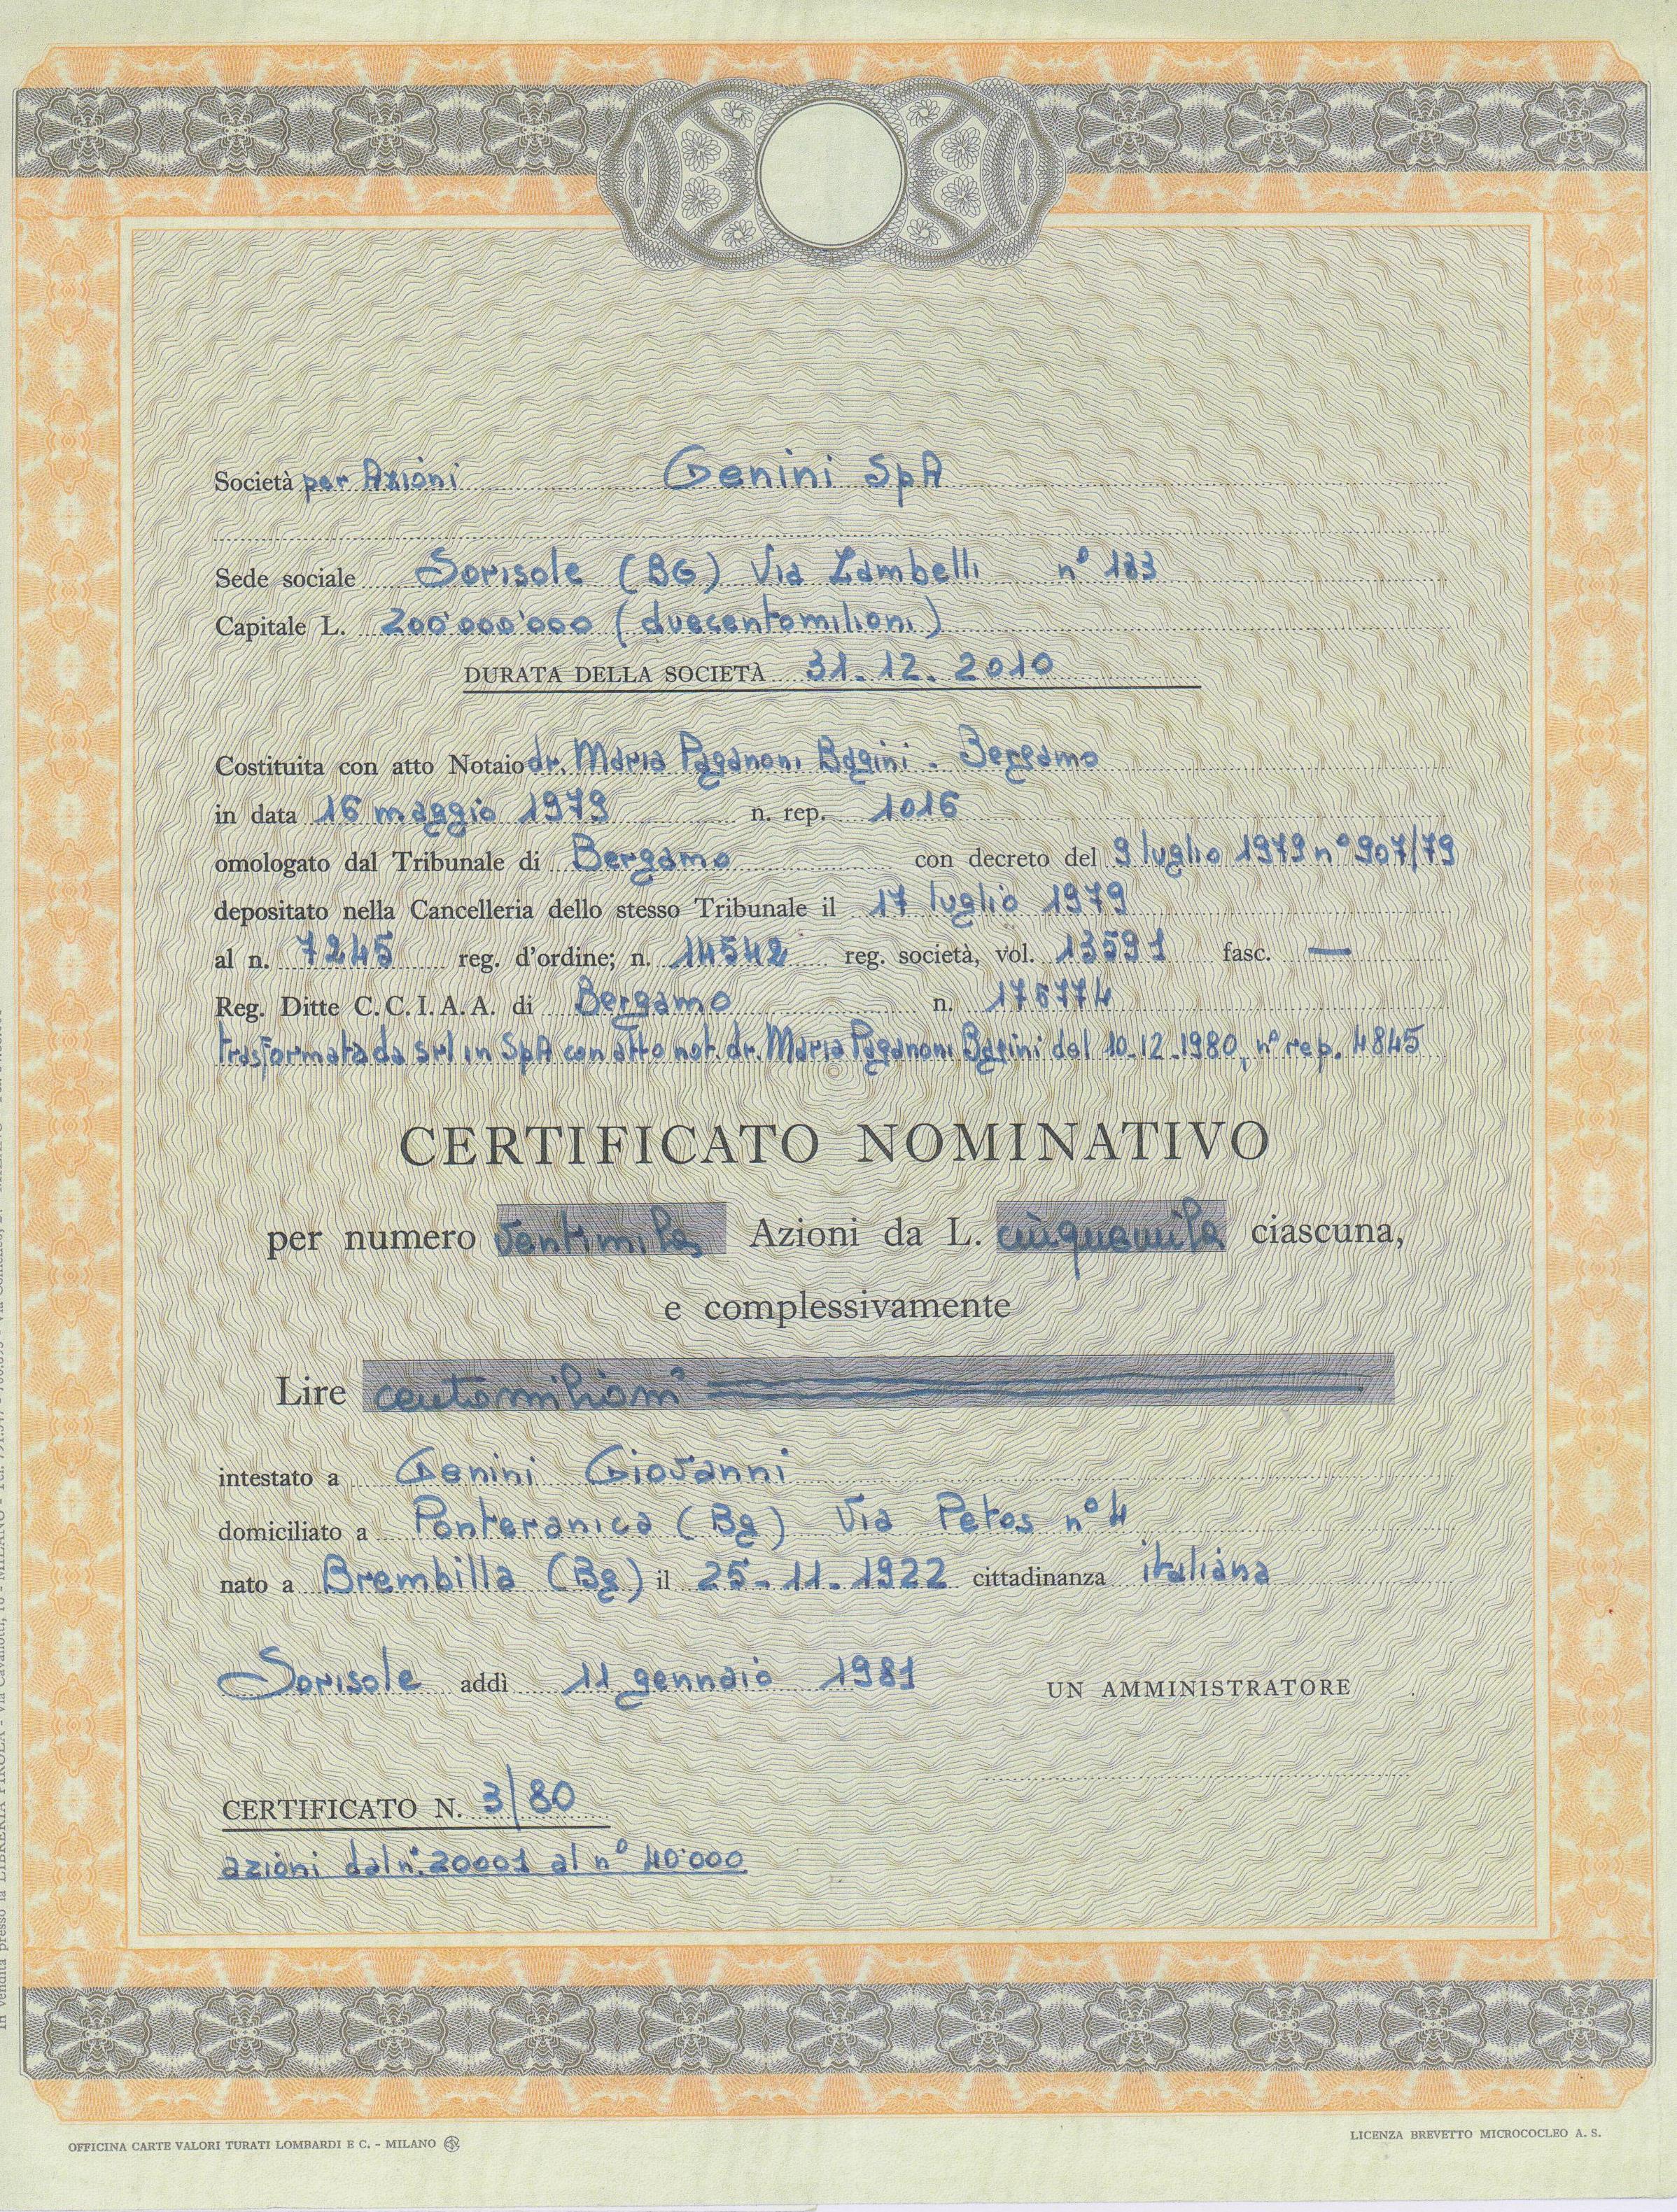 Società per Azioni Genini SpA
Sede sociale Sorisole (BG) Via Zambelli n° 183
Capitale L. 200'000'000 (duecentomilioni)
DURATA DELLA SOCIETÀ 31.12.2010
Costituita con atto Notaio dr. Maria Paganoni Bagini - Bergamo
in data 16 maggio 1979 n. rep. 1016
omologato dal Tribunale di Bergamo con decreto del 9 luglio 1979 n° 907/79
depositato nella Cancelleria dello stesso Tribunale il 17 luglio 1979
al n. 7245 reg. d'ordine; n. 14542 reg. società, vol. 13591 fasc. —
Reg. Ditte C.C.I.A.A. di Bergamo n. 175774
trasformata da srl in SpA con atto not. dr. Maria Paganoni Bagini del 10.12.1980, n° rep. 4845
CERTIFICATO NOMINATIVO
per numero ventimila Azioni da L. cinquemila ciascuna,
e complessivamente
Lire centomilioni
intestato a Genini Giovanni
domiciliato a Ponteranica (Bg) Via Petos n° 4
nato a Brembilla (Bg) il 25-11-1922 cittadinanza italiana
Sorisole addì 11 gennaio 1981 UN AMMINISTRATORE
CERTIFICATO N. 3/80
azioni dal n°. 20001 al n° 40'000
OFFICINA CARTE VALORI TURATI LOMBARDI E C. - MILANO
LICENZA BREVETTO MICROCOCLEO A. S.
In vendita presso la LIBRERIA PIROLA - Via Cavallotti, 16 - MILANO